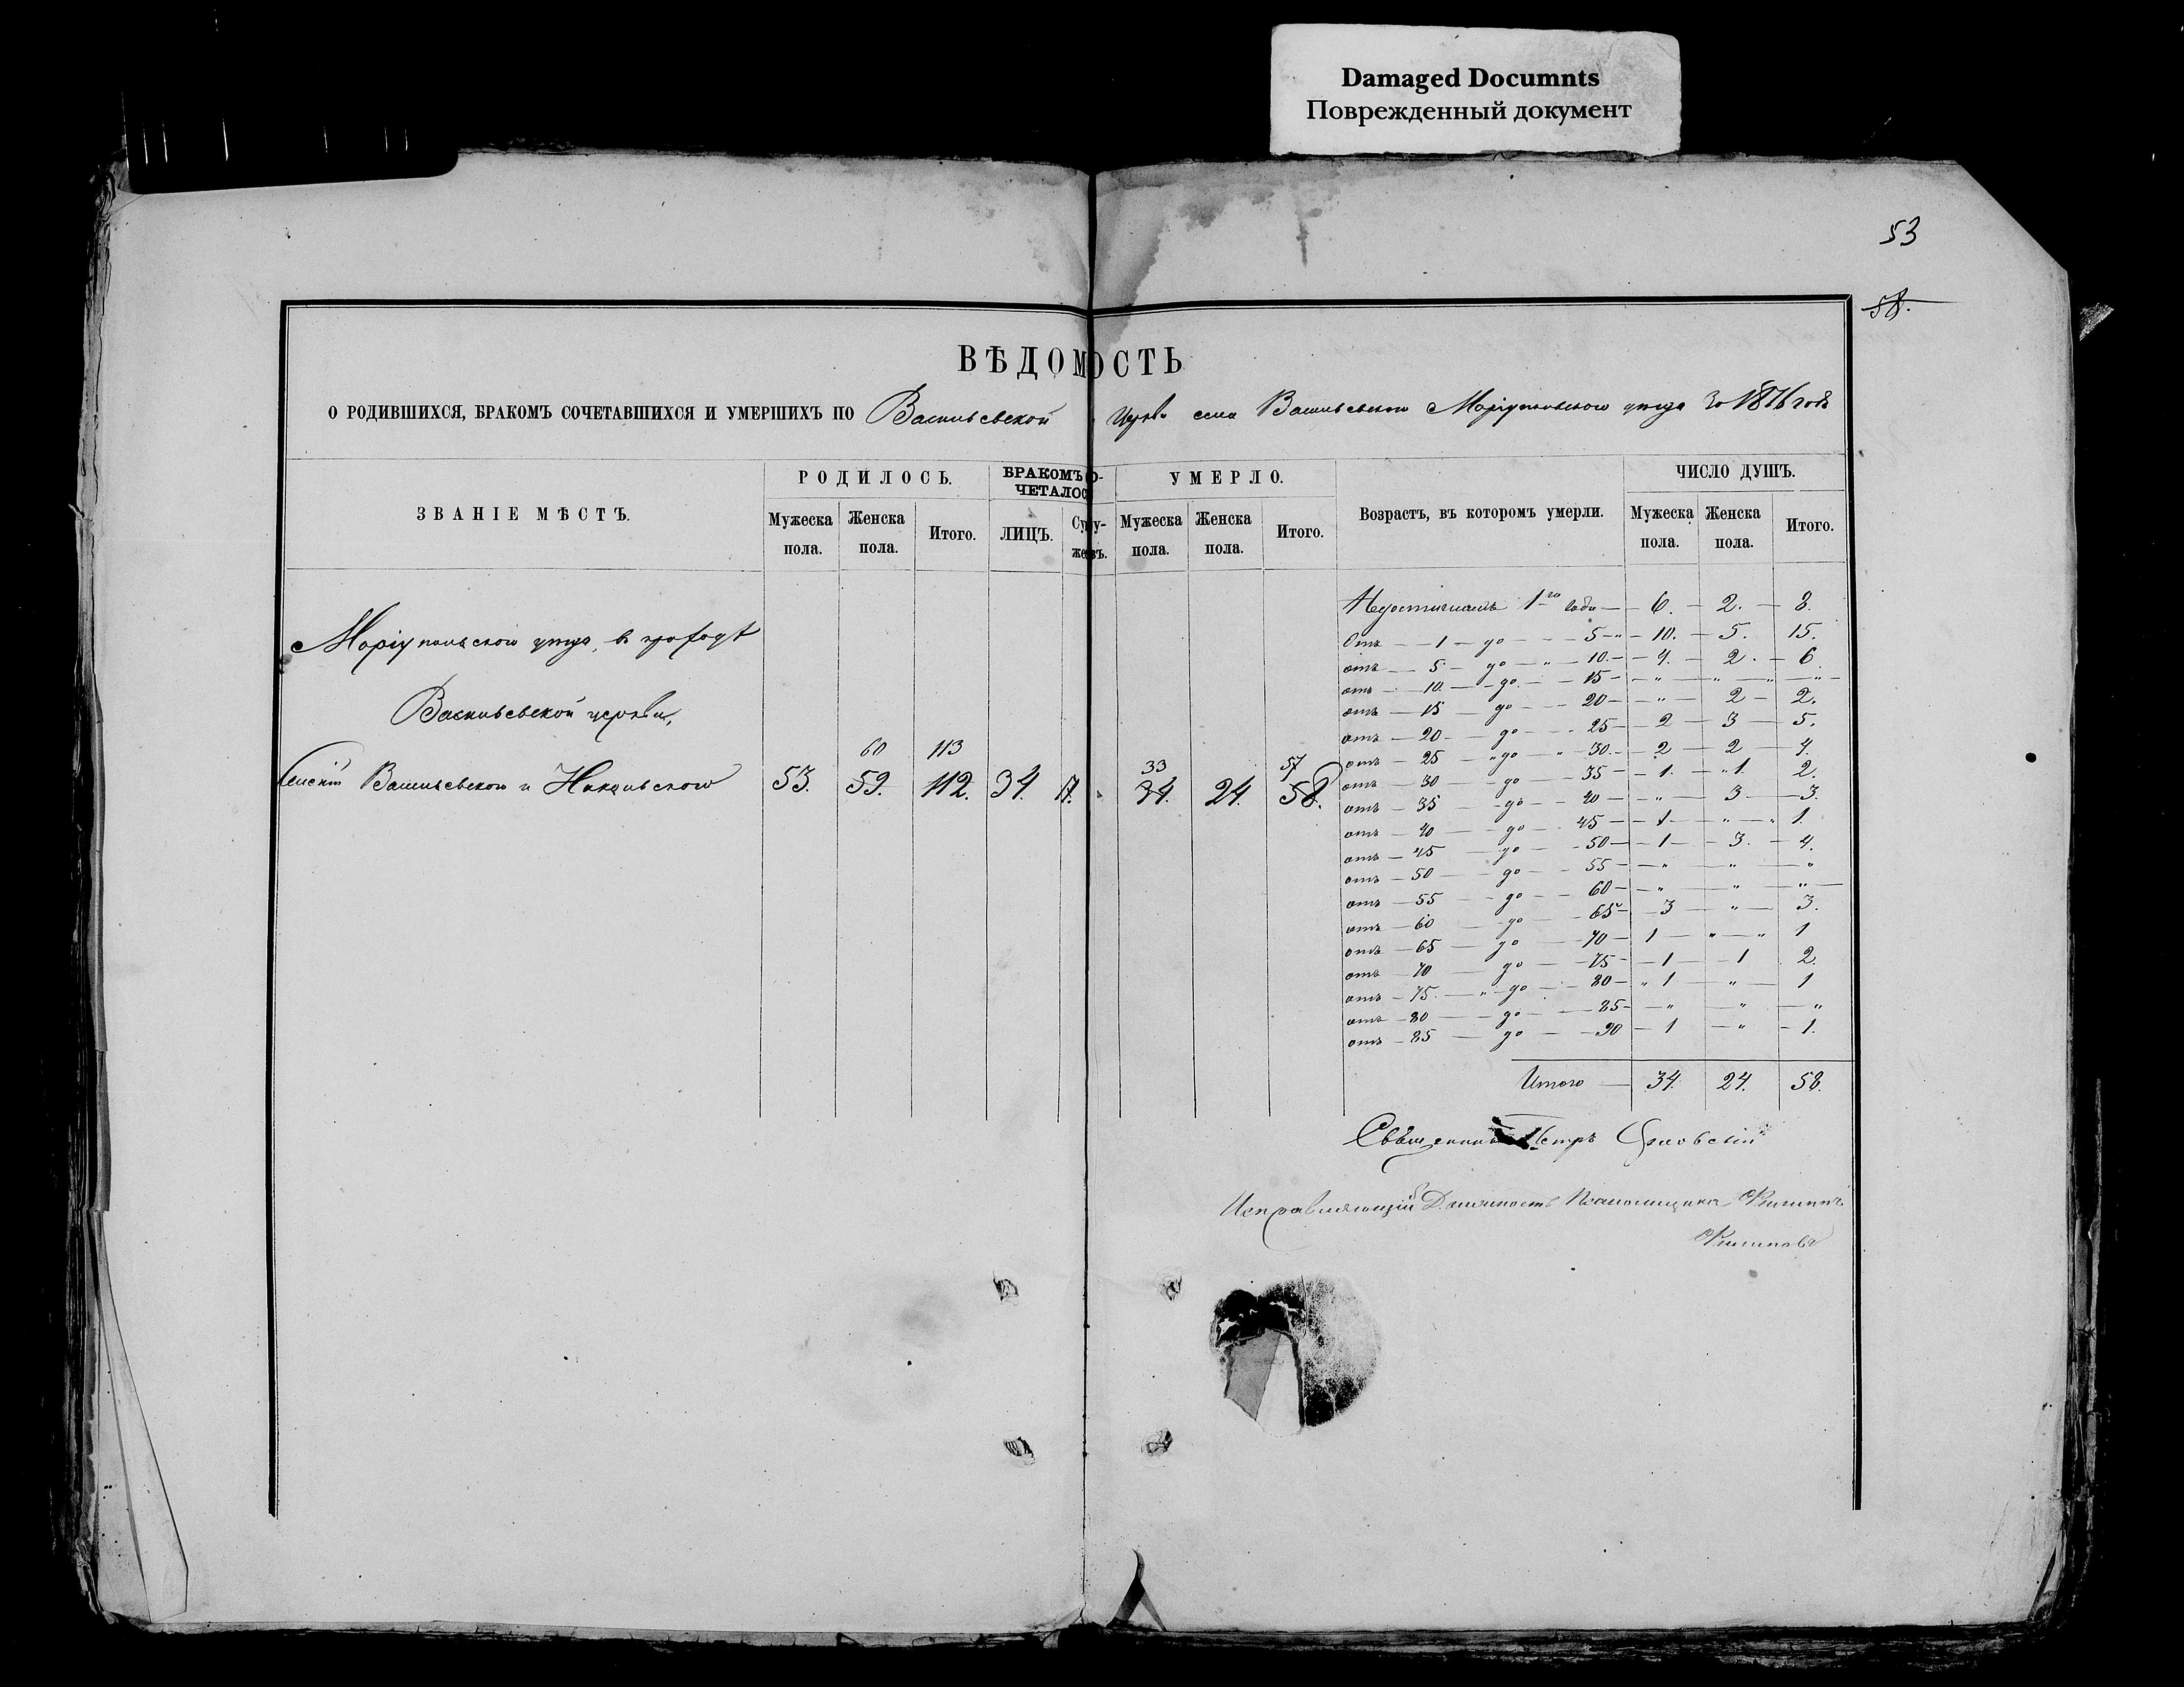 Damaged Documnts
Поврежденный документ
53
58.
ВѢДОМОСТЬ
О РОДИВШИХСЯ, БРАКОМЪ СОЧЕТАВШИХСЯ И УМЕРШИХЪ ПО Васильевской Церкви села Васильевского Маріупольского уезда За 1876 годъ
ЗВАНІЕ МѢСТЪ. РОДИЛОСЬ. БРАКОМЪ СО-ЧЕТАЛОСЬ УМЕРЛО. Возрастъ, въ которомъ умерли. ЧИСЛО ДУШЪ.
Мужеска пола. Женска пола. Итого. ЛИЦЪ. Супру-жевъ. Мужеска пола. Женска пола. Итого. Мужеска пола. Женска пола. Итого.
Маріупольского уезда, в
Васильевской церкви,
60 113 33 57
Васильевского и 53. 59. 112. 34. 17. 34. 24. 58.
1го года — 6. — 2. — 8.
Отъ — 1 — до — 5 — 10. — 5. 15.
отъ — 5 — до — 10 — 4. — 2. — 6.
отъ — 10. — до — 15 — „ — „ — „
отъ — 15 — до — 20 — „ — 2 — 2.
отъ — 20 — до — 25 — 2 — 3 — 5.
отъ — 25 — до — 30 — 2 — 2 — 4.
отъ — 30 — до — 35 — 1. — 1. 2.
отъ — 35 — до — 40 — „ — 3 — 3.
отъ — 40 — до — 45 — 1 — „ — 1.
отъ — 45 — до — 50 — 1 — 3. — 4.
отъ — 50 — до — 55 — „ — „ — „
отъ — 55 — до — 60 — „ — „ — „
отъ — 60 — до — 65 — 3 — „ — 3.
отъ — 65 — до — 70 — 1 — „ — 1
отъ — 70 — до — 75 — 1 — 1 2.
отъ — 75. — до — 80 — 1 — „ — 1
отъ — 80 — до — 85 — „ — „ — „
отъ — 85 — до — 90 — 1 — „ — 1.
Итого — 34. 24. 58.
Священникъ Петръ
Исправляющій Должность Псаломщика Филиппъ
Филиповъ